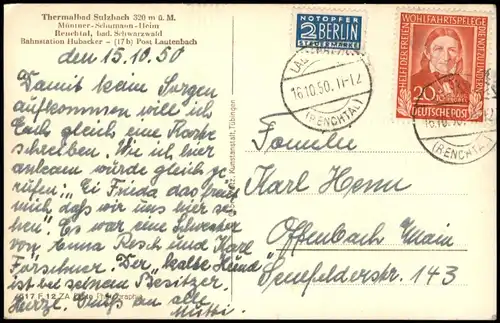 Thermalbad Sulzbach 320 m ü. M.
Müntner-Schumann-Heim
Renchtal, bad. Schwarzwald
Bahnstation Hubacker - (17b) Post Lautenbach
den 15.10.50
Damit keine Sorgen
aufkommen will ich
Euch gleich eine Karte
schreiben. Wie ich hier
ankam wurde gleich ge
rufen: "Ei Frieda das freut
mich, daß wir uns hier se
hen". Es war eine Schwester
von Anna Resch und Karl
Förschner. Der "kalte Hund"
ist bei seinem Besitzer.
Herzl. Gruß an alle
Mutti.
Kunstanstalt, Tübingen
NOTOPFER
2 BERLIN
STEUERMARKE
16.10.50. 11-12
(RENCHTAL)
HELFT DER FREIEN WOHLFAHRTSPFLEGE
20+
DEUTSCHE POST
(RENCHTAL)
Familie
Karl Henn
Offenbach Main
Senefelderstr 143